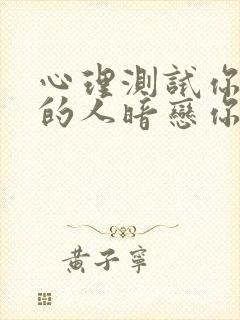 心理測試你
的人暗戀你
黃子寧